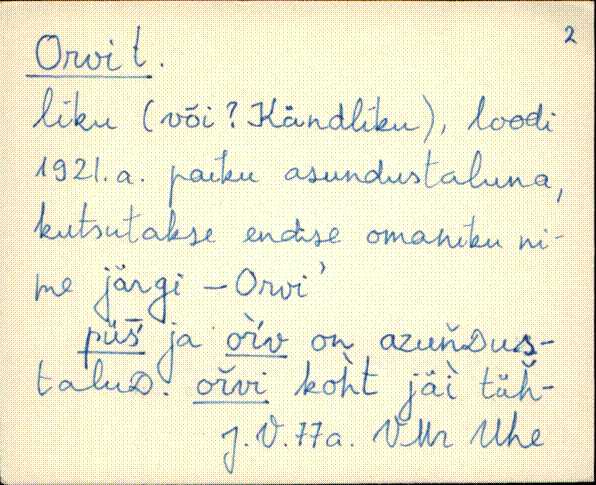 2
Orvi t.
liku (või? Kändliku), loodi
1921.a. paiku asundustaluna,
kutsutakse endise omaniku ni-
me järgi – Orvi'
püš́ ja or̀v on azuňDus-
taluD. or̆vi koh̀t jäì täh̆-
J.V. 77a. VMr Uhe